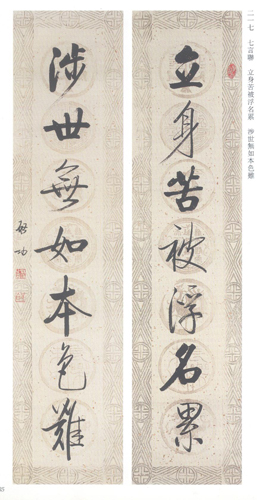 二一七　七言聯　立身苦被浮名累　涉世無如本色難
立身苦被浮名累
涉世無如本色難
啟功